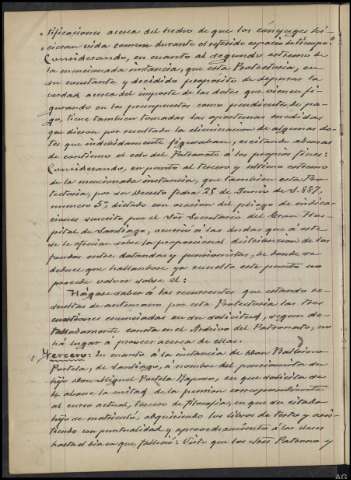 tificaciones acerca del hecho de que los cónyuges hi-
cieran vida comun durante el referido espacio de tiempo:
Considerando, en cuanto al segundo extremo de
la mencionada instancia, que esta Protectoria, en
su constante y decidido propósito de depurar la
verdad acerca del importe de las dotes que vienen fi-
gurando en los presupuestos como pendientes de pa-
go, tiene tambien tomadas las oportunas medidas
que dieron por resultado la eliminacion de algunas do-
tes que indebidamente figuraban, excitando ahora
de continuo el celo del Patronato á los propios fines:
Considerando, en punto al tercero y último extremo
de la mencionada instancia, que tambien esta Pro-
tectoria, por su Decreto fecha 25 de Junio de 1.887,
número 5º, dictado con ocasion del pliego de indica-
ciones suscrito por el Sr. Secretario del Gran Hos-
pital de Santiago, ocurrió á las dudas que á este
se le ofrecian sobre la proporcional distribucion de los
fondos entre dotandas y pensionistas, de donde se
deduce que hallándose ya resuelto este punto no
procede volver sobre él:
Hágase saber á los recurrentes que estando re-
sueltas de antemano por esta Protectoria las tres
cuestiones enunciadas en su solicitud, segun de-
talladamente consta en el Archivo del Patronato, no
há lugar á proveer acerca de ellas.
Tercero: En cuanto á la instancia de Juan
Portela, de Santiago, á nombre del pensionista su
hijo Don Miguel Portela, en que solicita se
le abone la mitad de la pension correspondiente
al curso actual, tercero de filosofia, en que su citado
hijo se matriculó, adquiriendo los libros de texto y asis-
tiendo con puntualidad y aprovechamiento á las clases
hasta el dia en que falleció: Visto que los Sres. Patronos y
AG